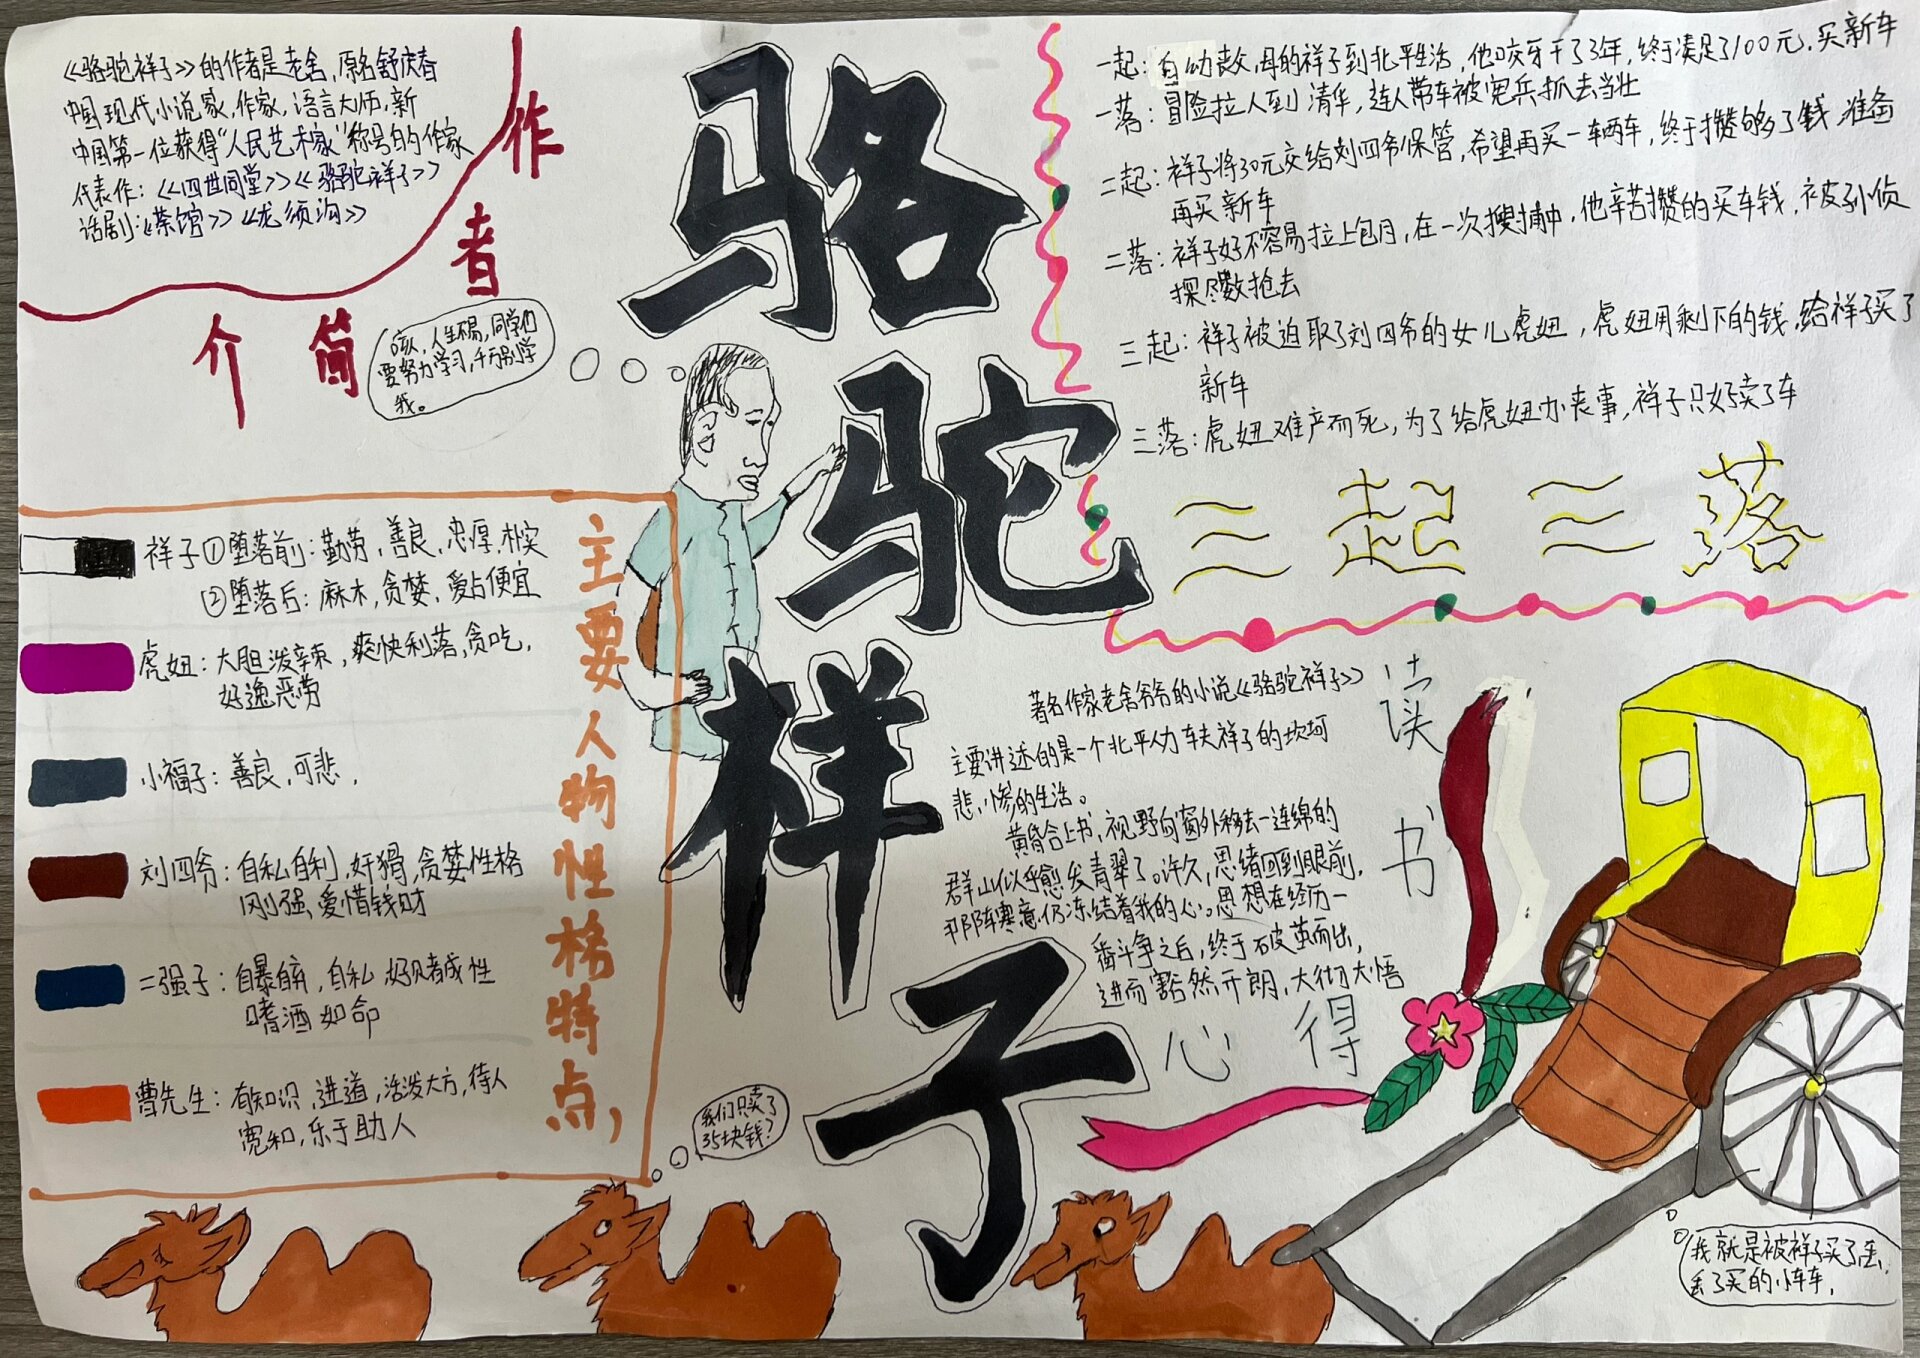 《骆驼祥子》的作者是老舍,原名舒庆春
中国现代小说家,作家,语言大师,新
中国第一位获得“人民艺术家”称号的作家
代表作:《四世同堂》《骆驼祥子》
话剧:《茶馆》《龙须沟》
作者
简介
骆驼祥子
咳,人生不易,同学们
要努力学习,千万别学
我。
一起:自幼丧父,母的祥子到北平生活,他咬牙干了3年,终于凑足了100元.买新车
一落:冒险拉人到清华,连人带车被宪兵抓去当壮
二起:祥子将30元交给刘四爷保管,希望再买一车两车,终于攒够了钱,准备
再买新车
二落:祥子好不容易拉上包月,在一次搜捕中,他辛苦攒的买车钱,被孙侦
探尽数抢去
三起:祥子被迫取了刘四爷的女儿虎妞,虎妞用剩下的钱,给祥子买了
新车
三落:虎妞难产而死,为了给虎妞办丧事,祥子只好卖了车
三起三落
主要人物性格特点,
祥子①堕落前:勤劳,善良,忠厚.朴实
②堕落后:麻木,贪婪,爱占便宜
虎妞:大胆泼辣,爽快利落,贪吃,
好逸恶劳
小福子:善良,可悲,
刘四爷:自私自利,奸猾,贪婪性格
刚强、爱惜钱财
二强子:自暴自弃,自私,好赌成性
嗜酒如命
曹先生:有知识,进道,活泼大方,待人
宽和,乐于助人
读书
心得
著名作家老舍爷爷的小说《骆驼祥子》
主要讲述的是一个北平人力车夫祥子的坎坷
悲惨的生活。
黄昏合上书,视野向窗外移去一连绵的
群山似乎愈发青翠了。许久,思绪回到眼前,
那阵寒意仍冻结着我的心。思想在经历一
番斗争之后,终于破茧而出,
进而豁然开朗,大彻大悟
我们只卖了
35块钱?
我就是被祥子买了丢,
丢了买的小车车,